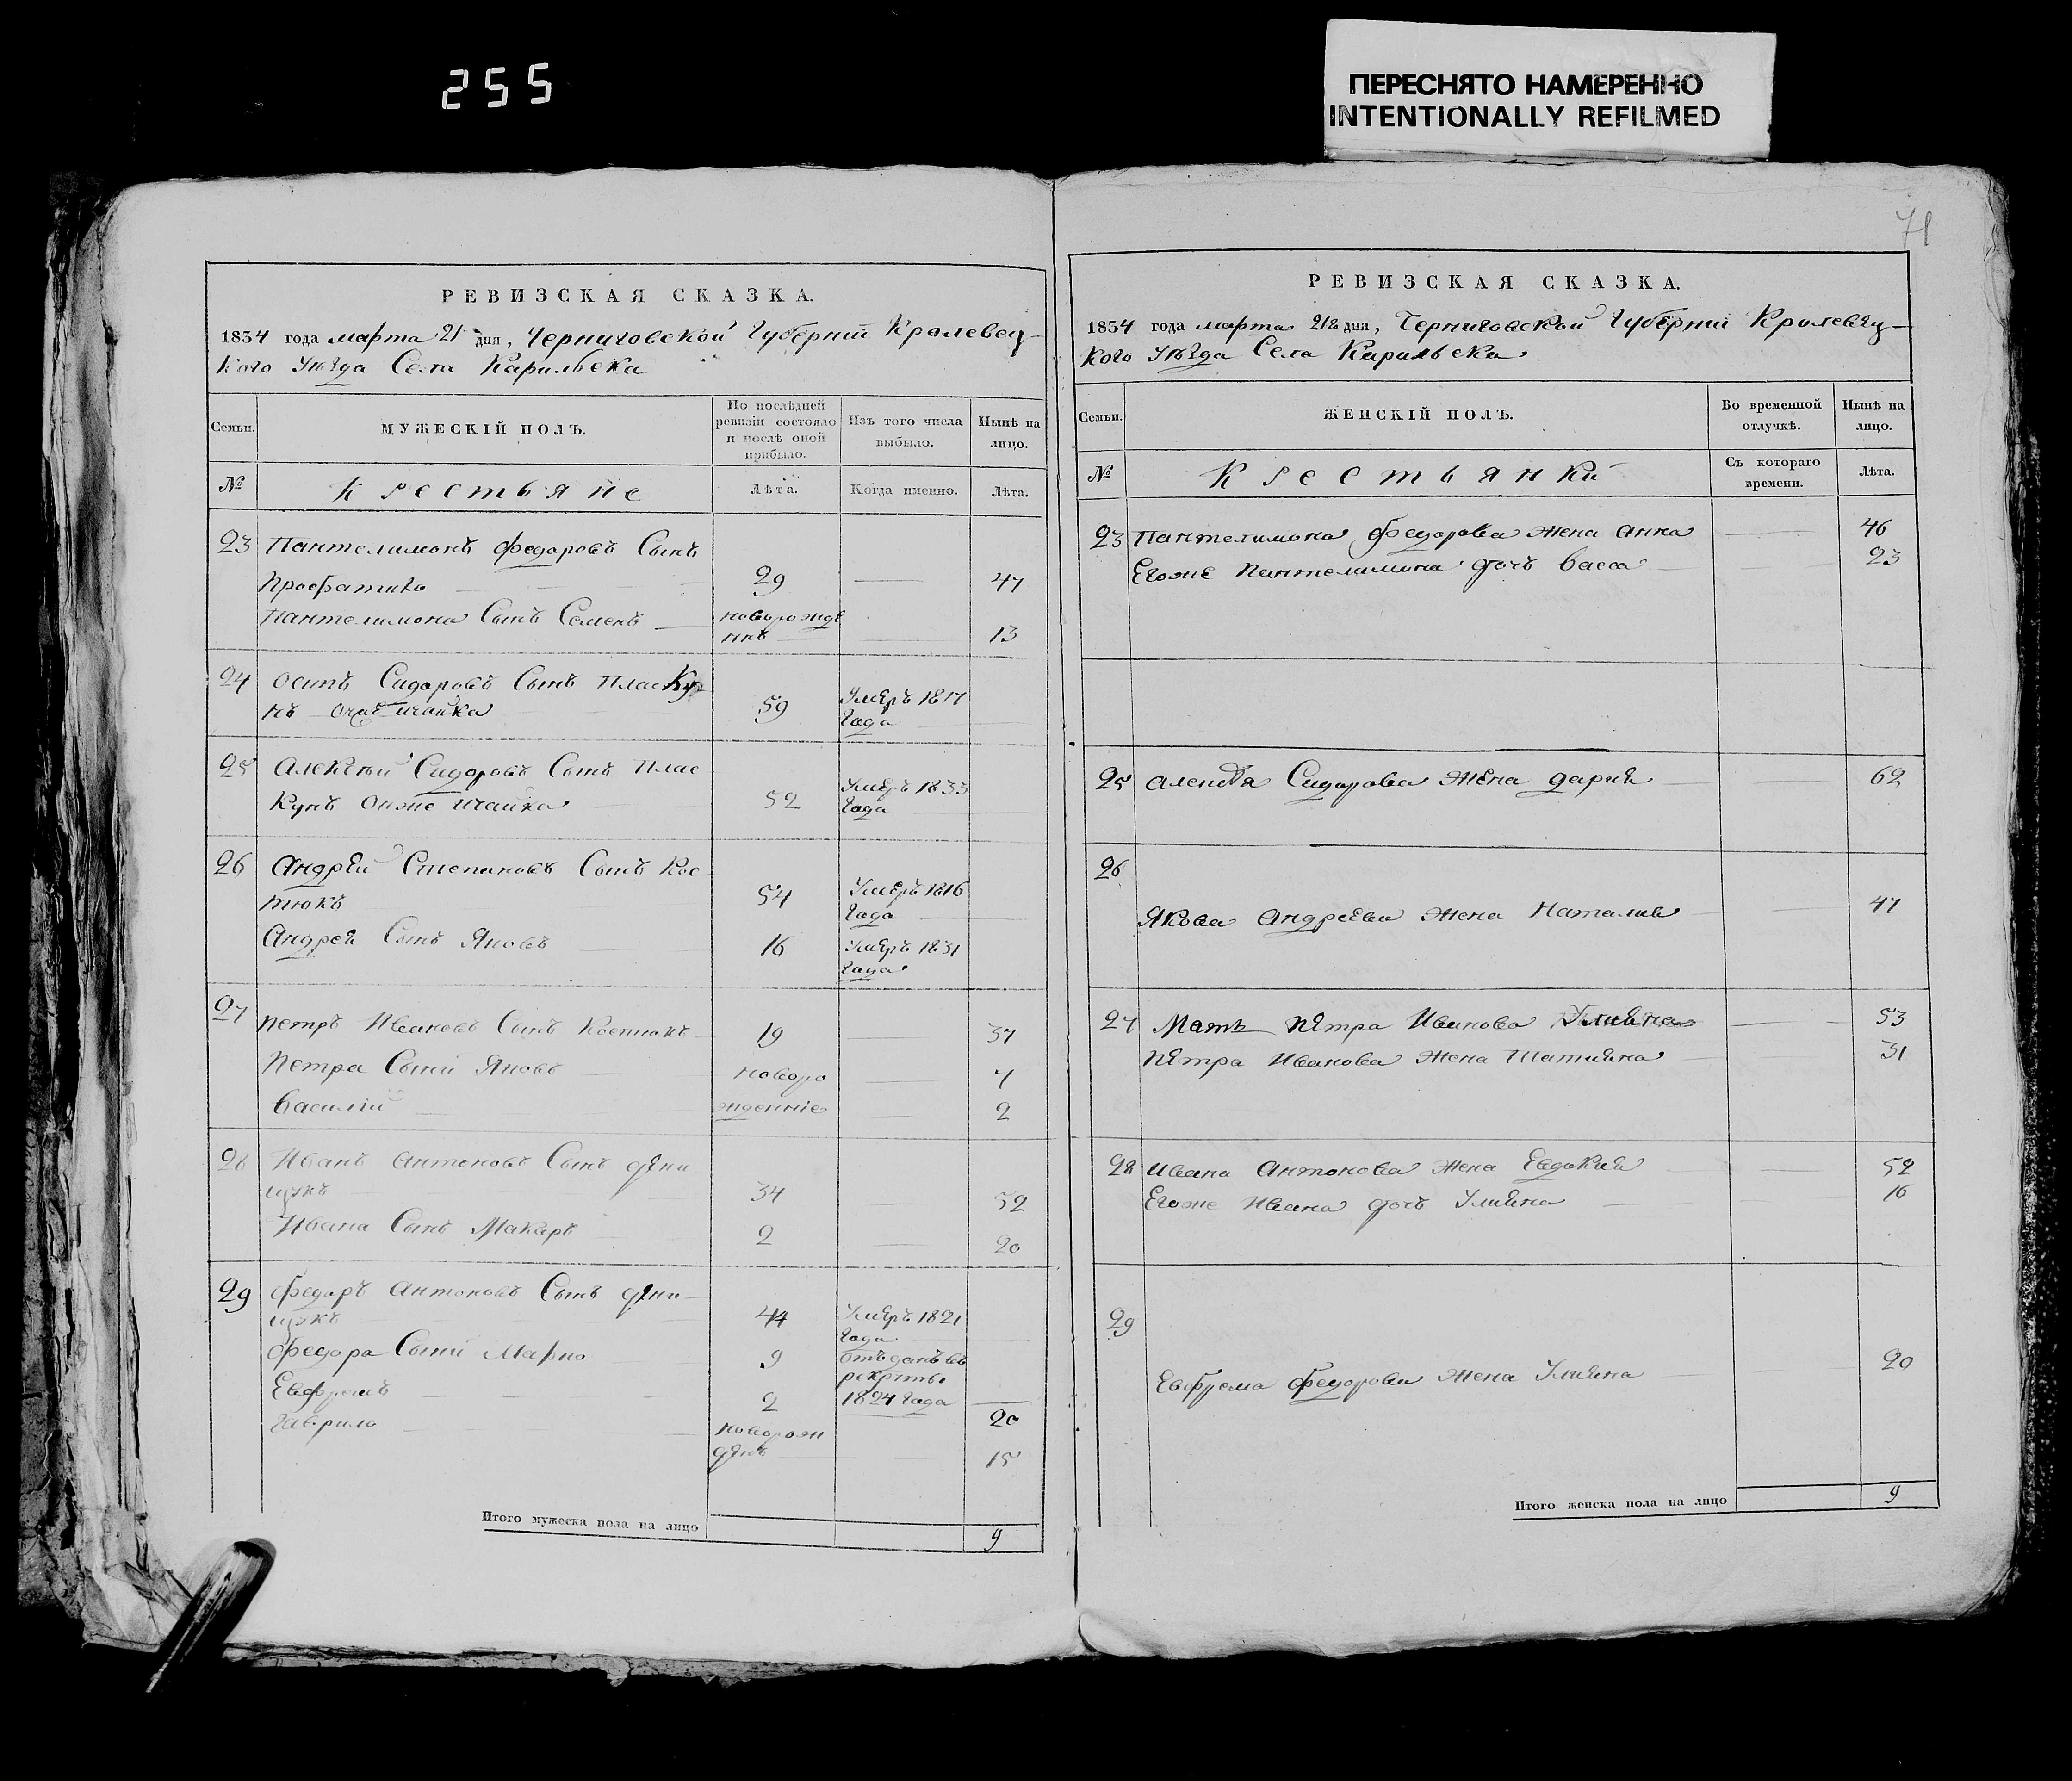 255
ПЕРЕСНЯТО НАМЕРЕННО
INTENTIONALLY REFILMED
71
РЕВИЗСКАЯ СКАЗКА.
1834 года марта 21 дня, Черниговской Губерніи Кролевец-
кого Уѣзда Села Карильска
Семьи.
МУЖЕСКІЙ ПОЛЪ.
По послѣдней
ревизіи состояло
и послѣ оной
прибыло.
Изъ того числа
выбыло.
Нынѣ на
лицо.
№
Крестьяне
Лѣта.
Когда именно.
Лѣта.
23 Пантелимонъ Федоровъ Сынъ
29 47
Пантелимона Сынъ Семенъ новорожде
ннъ 13
24 Осипъ Сидоровъ Сынъ Пласку
нъ 59 Умеръ 1817
Года
25 Алексѣй Сидоровъ Сынъ Плас
кунъ онже 52 Умеръ 1833
Года
26 Андрей Степановъ Сынъ Кос
тюкъ 54 Умеръ 1816
Года
Андрея Сынъ Яковъ 16 Умеръ 1831
Года
27 Петръ Ивановъ Сынъ Костюкъ 19 37
Петра Сыни Яковъ новоро 7
Василій жденніе 2
28 Иванъ Антоновъ Сынъ дени
щукъ 34 52
Ивана Сынъ Макаръ 2 20
29 Федоръ Антоновъ Сынъ дени-
щукъ 44 Умеръ 1821
Года
Федора Сыни Марко 9 отъданъ въ
рекруты
Евфремъ 2 1824 Года 20
Гаврило новорож
денъ 15
Итого мужеска пола на лицо 9
РЕВИЗСКАЯ СКАЗКА.
1834 года марта 21 дня, Черниговской Губерніи Кролевец-
кого Уѣзда Села Карильска
Семьи.
ЖЕНСКІЙ ПОЛЪ.
Во временной
отлучкѣ.
Нынѣ на
лицо.
№
Крестьянки
Съ котораго
времени.
Лѣта.
23 Пантелимона Федорова жена Анна 46
Егоже Пантелимона дочь Васса 23
25 Сидорова жена Дарія 62
26
Якова Андреева жена Наталия 47
27 Мать Петра Иванова Улияна 53
Петра Иванова жена Татияна 31
28 Ивана Антонова жена Евдокия 52
Егоже Ивана дочь Улияна 16
29
Евфрема Федорова жена Улияна 20
Итого женска пола на лицо 9